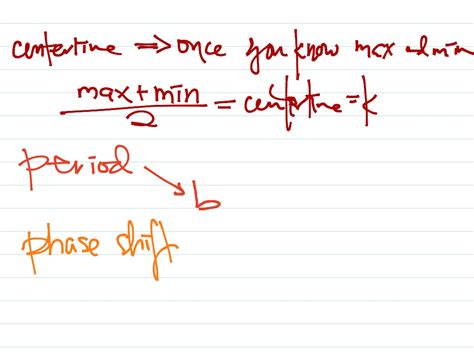 centerline => once you know max and min
max + min / 2 = centerline = k
period → b
phase shift